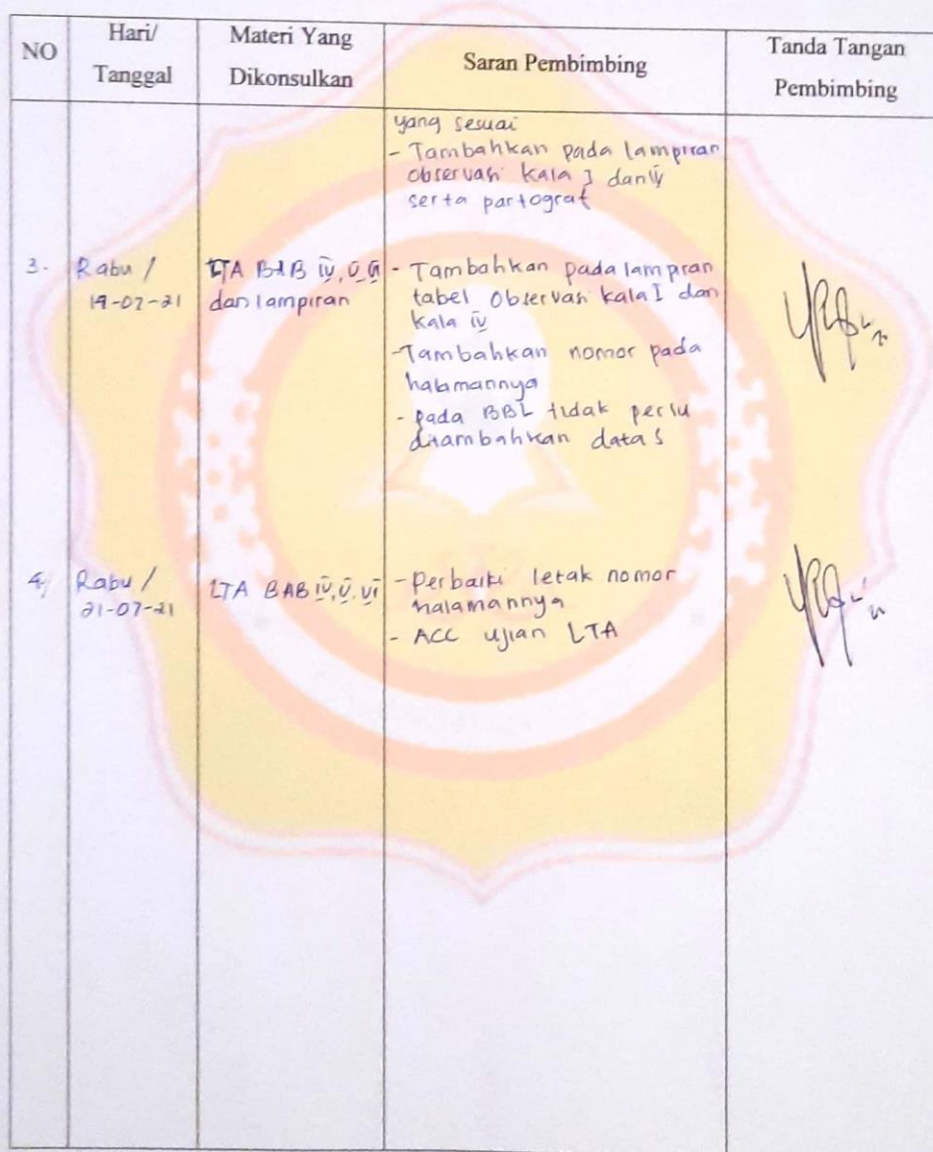 NO
Hari/
Tanggal
Materi Yang
Dikonsulkan
Saran Pembimbing
Tanda Tangan
Pembimbing
yang sesuai
- Tambahkan pada lampiran
observasi kala I dan IV
serta partograf
3. Rabu /
-21
LTA BAB IV, V, VI
dan lampiran
- Tambahkan pada lampiran
tabel Observasi kala I dan
kala IV
- Tambahkan nomor pada
halamannya
- pada BBL tidak perlu
ditambahkan data S
4. Rabu /
21-07-21
LTA BAB IV, V, VI
- Perbaiki letak nomor
halamannya
- ACC ujian LTA